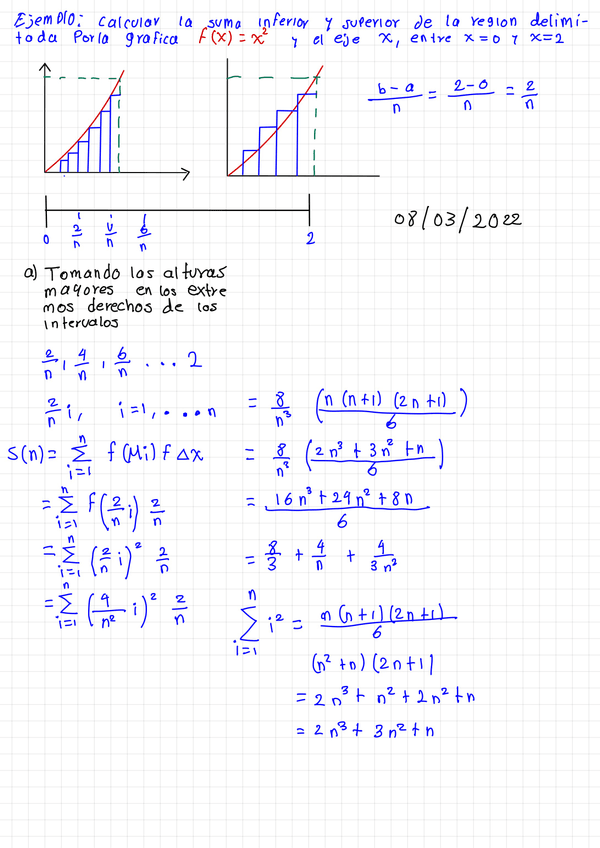 Ejemplo: calcular la suma inferior y superior de la region delimi-
tada Por la grafica f(x) = x² y el eje x, entre x=0 y x=2
b-a/n = 2-0/n = 2/n
08/03/2022
0 2/n 4/n 6/n 2
a) Tomando las alturas
mayores en los extre
mos derechos de los
intervalos
2/n, 4/n, 6/n ... 2
2/n i, i=1, ... n
S(n) = n Σ i=1 f(Mi) f Δx
= n Σ i=1 f(2/n i) 2/n
= n Σ i=1 (2/n i)² 2/n
= n Σ i=1 (4/n² i)² 2/n
= 8/n³ (n (n+1) (2n+1)/6)
= 8/n³ (2n³ + 3n² + n/6)
= 16n³ + 24n² + 8n/6
= 8/3 + 4/n + 4/3n²
n Σ i=1 i² = n(n+1)(2n+1)/6
(n² + n) (2n+1)
= 2n³ + n² + 2n² + n
= 2n³ + 3n² + n